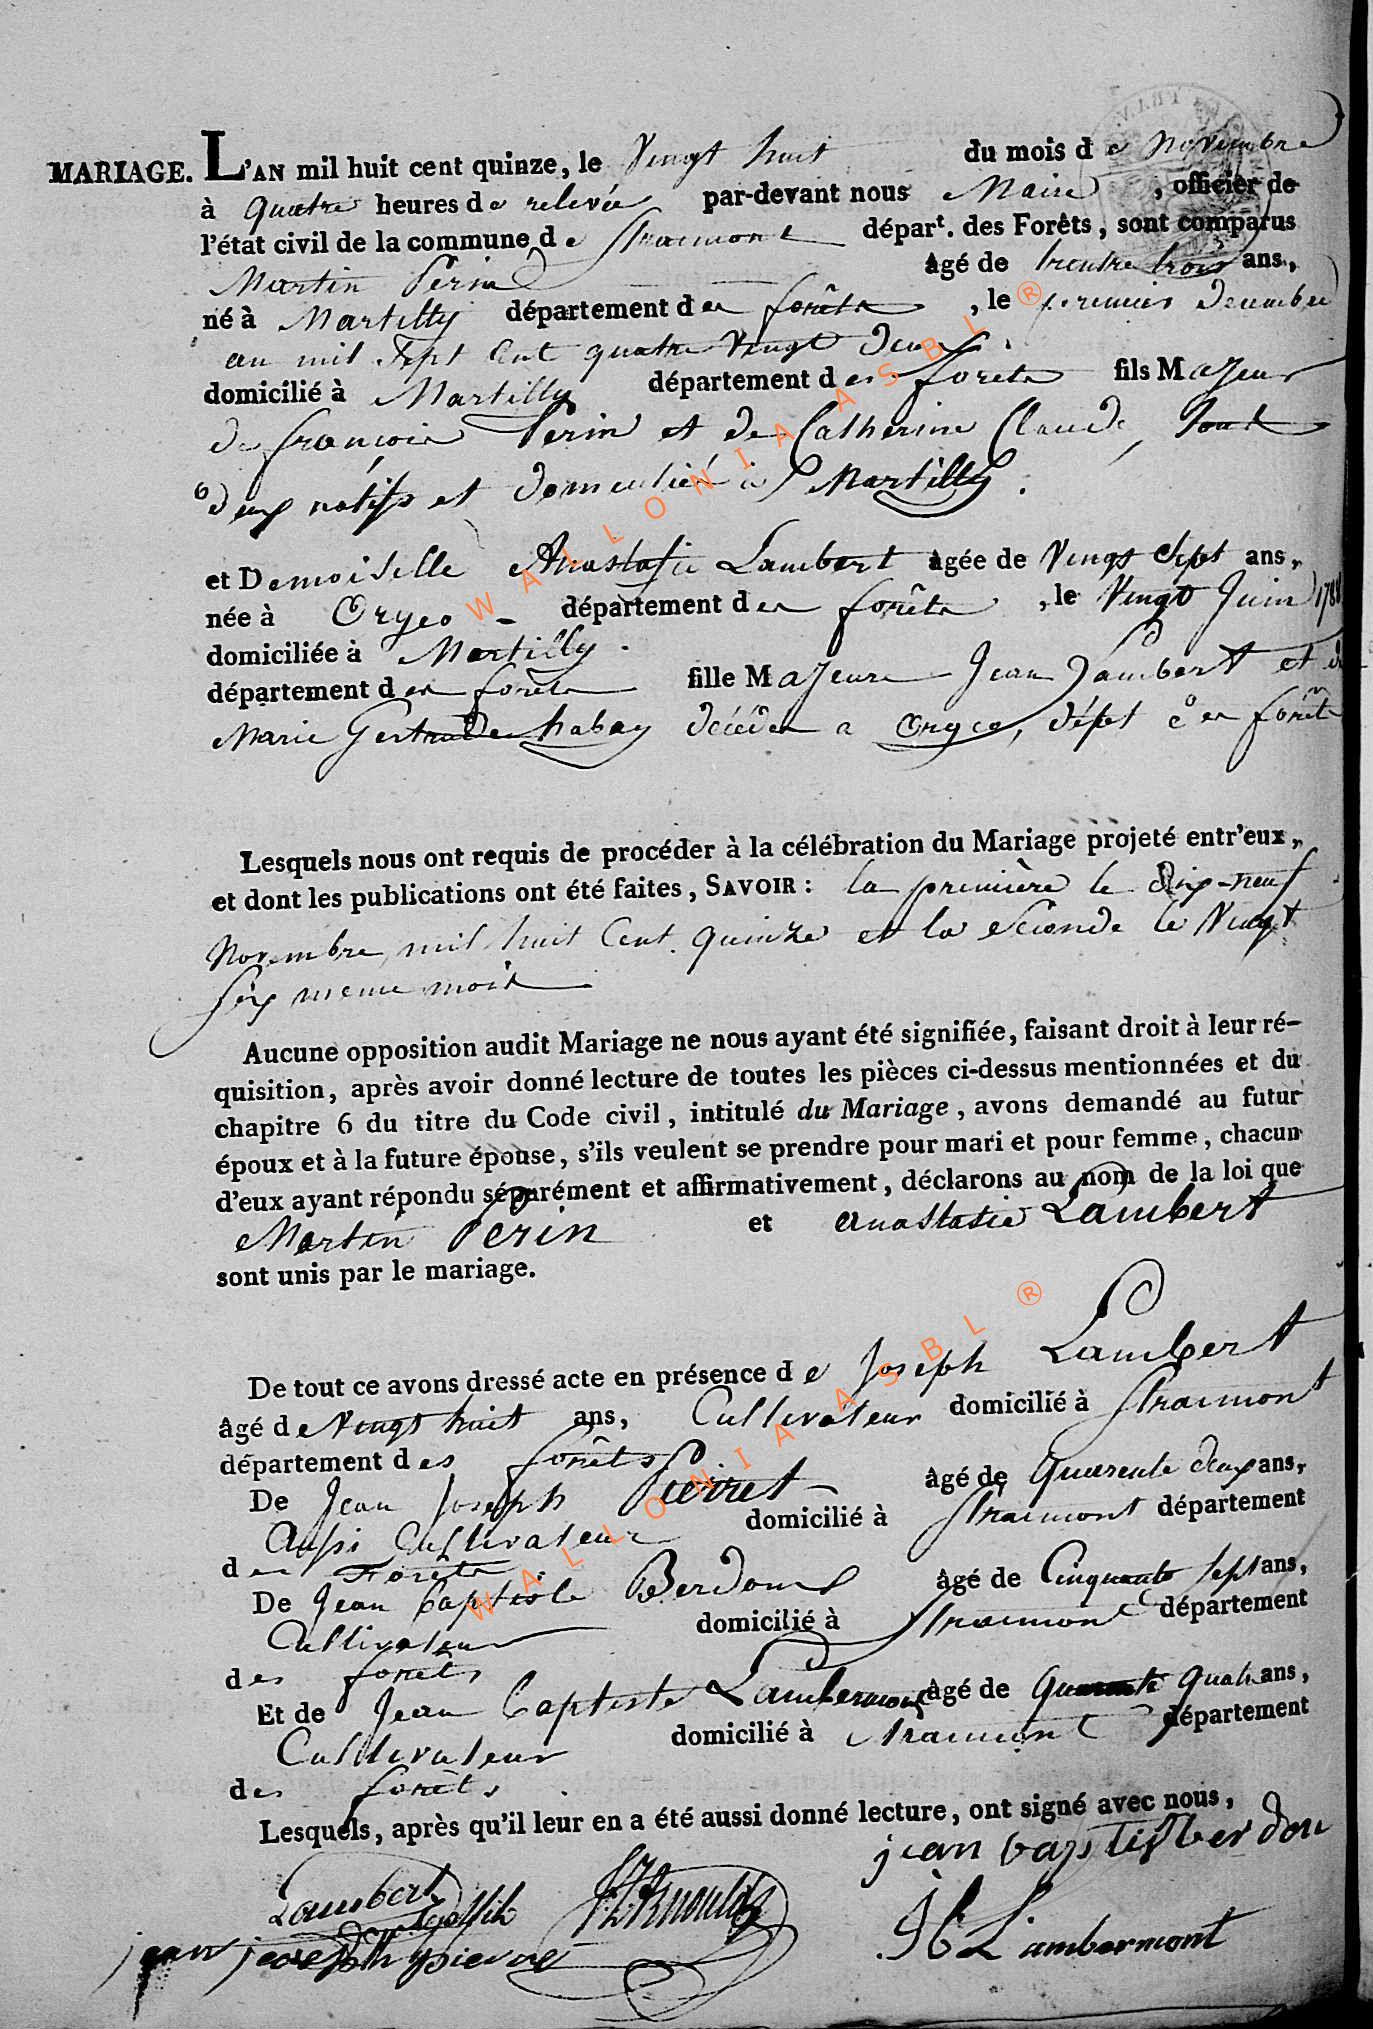 MARIAGE. L'AN mil huit cent quinze, le Vingt huit du mois de Novembre
à quatre heures de relevée par-devant nous Maire, officier de
l'état civil de la commune de Straimont départ. des Forêts, sont comparus
Martin Perin âgé de trentre trois ans,
né à Martilly département des forêts, le premier Decembre
an mil Sept Cent quatre Vingt deux
domicilié à Martilly département des forets fils Majeur
de françois Perin et de Catherine Claude, Tout
deux natifs et domicilié à Martilly.
et Demoiselle Anastasie Lambert agée de Vingt Sept ans,
née à Orgeo département des forêts, le Vingt Juin 1788
domiciliée à Martilly.
département des forêts fille Majeure Jean Lambert et de
Marie Gertrude habay décédés a Orgeo, dépt des forêts
Lesquels nous ont requis de procéder à la célébration du Mariage projeté entr'eux,
et dont les publications ont été faites, SAVOIR: la première le dix-neuf
Novembre mil huit Cent quinze et la Seconde le Vingt
Six meme mois
Aucune opposition audit Mariage ne nous ayant été signifiée, faisant droit à leur ré-
quisition, après avoir donné lecture de toutes les pièces ci-dessus mentionnées et du
chapitre 6 du titre du Code civil, intitulé du Mariage, avons demandé au futur
époux et à la future épouse, s'ils veulent se prendre pour mari et pour femme, chacun
d'eux ayant répondu séparément et affirmativement, déclarons au nom de la loi que
Martin Perin et Anastasie Lambert
sont unis par le mariage.
De tout ce avons dressé acte en présence de Joseph Lambert
âgé de Vingt huit ans, Cultivateur domicilié à Straimont
département des forêts
De Jean Joseph Pierret âgé de Quarente deux ans,
Aussi Cultivateur domicilié à Straimont département
des Forêts
De Jean Baptiste Berdoux âgé de Cinquante sept ans,
Cultivateur domicilié à Straimont département
des forêts
Et de Jean Baptiste Lambermont âgé de Quarante quatre ans,
Cultivateur domicilié à Straimont département
des forêts
Lesquels, après qu'il leur en a été aussi donné lecture, ont signé avec nous,
jean baptist berdou
Lambert
jean joseph pierret
JB Lambermont
WALLONIA ASBL ®
WALLONIA ASBL ®